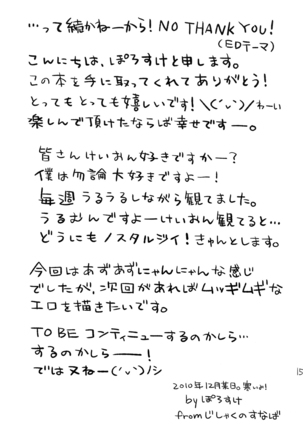 …って続かねーから! NO THANK YOU!
(EDテーマ)
こんにちは、ぽろすけと申します。
この本を手に取ってくれてありがとう!
とってもとっても嬉しいです!\('ヮ')/わーい
楽しんで頂けたならば幸せですー。
皆さんけいおん好きですかー?
僕は勿論大好きですよー!
毎週うるうるしながら観てました。
うるむんですよーけいおん観てると…
どうにもノスタルジイ!きゅんとします。
今回はあずあずにゃんにゃんな感じ
でしたが、次回があればムッギムギな
エロを描きたいです。
TO BE コンティニューするのかしら…
するのかしら――!
では又ねー('ヮ')ノシ
15
2010年12月某日。寒いよ!
by ぽろすけ
fromじしゃくのすなば